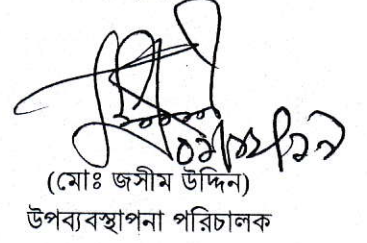 (মোঃ জসীম উদ্দিন)
উপব্যবস্থাপনা পরিচালক